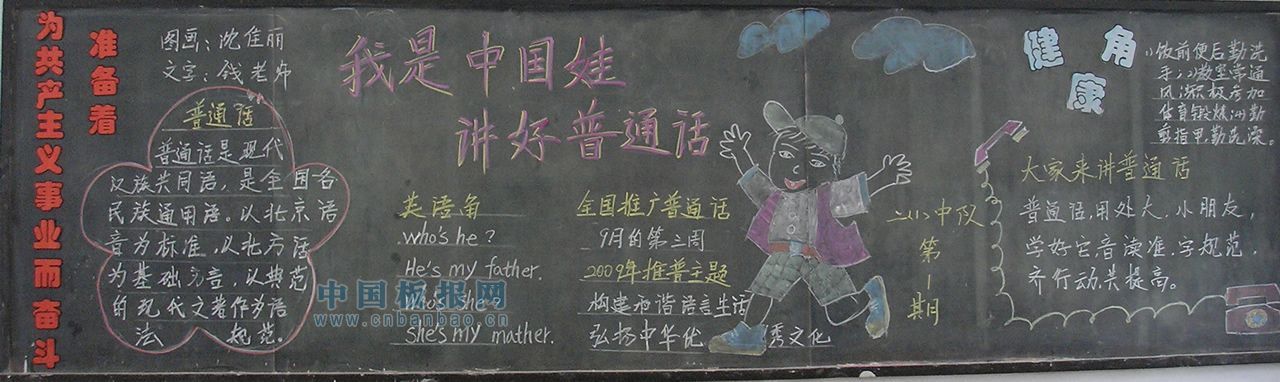 准备着
为共产主义事业而奋斗
图画：沈佳丽
文字：钱老师
普通话
普通话是现代
汉族共同语，是全国各
民族通用语。以北京语
音为标准，以北方话
为基础方言，以典范
的现代文著作为语
法 规范。
我是中国娃
讲好普通话
英语角
who's he?
He's my father.
Who's she?
she's my mather.
全国推广普通话
9月的第三周
2009年推普主题
构建和谐语言生活
弘扬中华优秀文化
二（1）中队
第
1
期
健康角
饭前便后勤洗
手；教室常通
风；积极参加
体育锻炼；勤
剪指甲，勤洗澡。
大家来讲普通话
普通话，用处大，小朋友，
学好它，音读准，字规范，
齐行动，共提高。
中国板报网
www.cnbanbao.cn